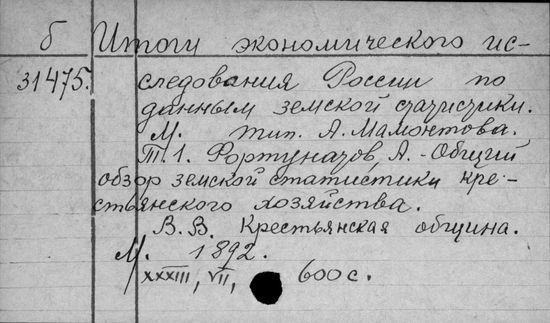 б Итоги экономического ис-
31475. следования России по
данным земской статистики.
М. тип. А. Мамонтова.
Т. 1. Фортунатов, А. - Общий
обзор земской статистики кре-
стьянского хозяйства.
В. В. Крестьянская община.
М. 1892.
XXXIII, VII, 600 с.